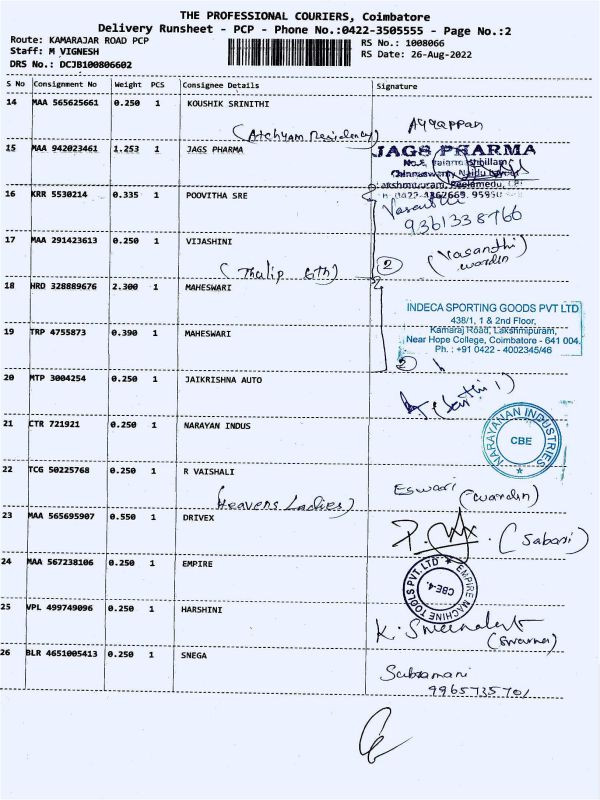 THE PROFESSIONAL COURIERS, Coimbatore
Delivery Runsheet - PCP - Phone No.:0422-3505555 - Page No.:2
Route: KAMARAJAR ROAD PCP
Staff: M VIGNESH
DRS No.: DCJB100806602
RS No.: 1008066
RS Date: 26-Aug-2022
S No Consignment No Weight PCS Consignee Details Signature
14 MAA 565625661 0.250 1 KOUSHIK SRINITHI
Ayyappan
15 MAA 942023461 1.253 1 JAGS PHARMA
JAGS PHARMA
16 KRR 5530214 0.335 1 POOVITHA SRE
9361338766
17 MAA 291423613 0.250 1 VIJASHINI
(Vasanthi)
warden
2
18 HRD 328889676 2.300 1 MAHESWARI
INDECA SPORTING GOODS PVT LTD
438/1, 1 & 2nd Floor,
Kamaraj Road, Lakshmipuram,
Near Hope College, Coimbatore - 641 004.
Ph. : +91 0422 - 4002345/46
19 TRP 4755873 0.390 1 MAHESWARI
2
20 MTP 3004254 0.250 1 JAIKRISHNA AUTO
21 CTR 721921 0.250 1 NARAYAN INDUS
NARAYANAN INDUSTRIES
CBE
22 TCG 50225768 0.250 1 R VAISHALI
(Heavens Ladies)
Eswari (warden)
23 MAA 565695907 0.550 1 DRIVEX
(Sabari)
24 MAA 567238106 0.250 1 EMPIRE
EMPIRE MACHINE TOOLS PVT. LTD
CBE-4.
25 VPL 499749096 0.250 1 HARSHINI
26 BLR 4651005413 0.250 1 SNEGA
Subramani
9965735701